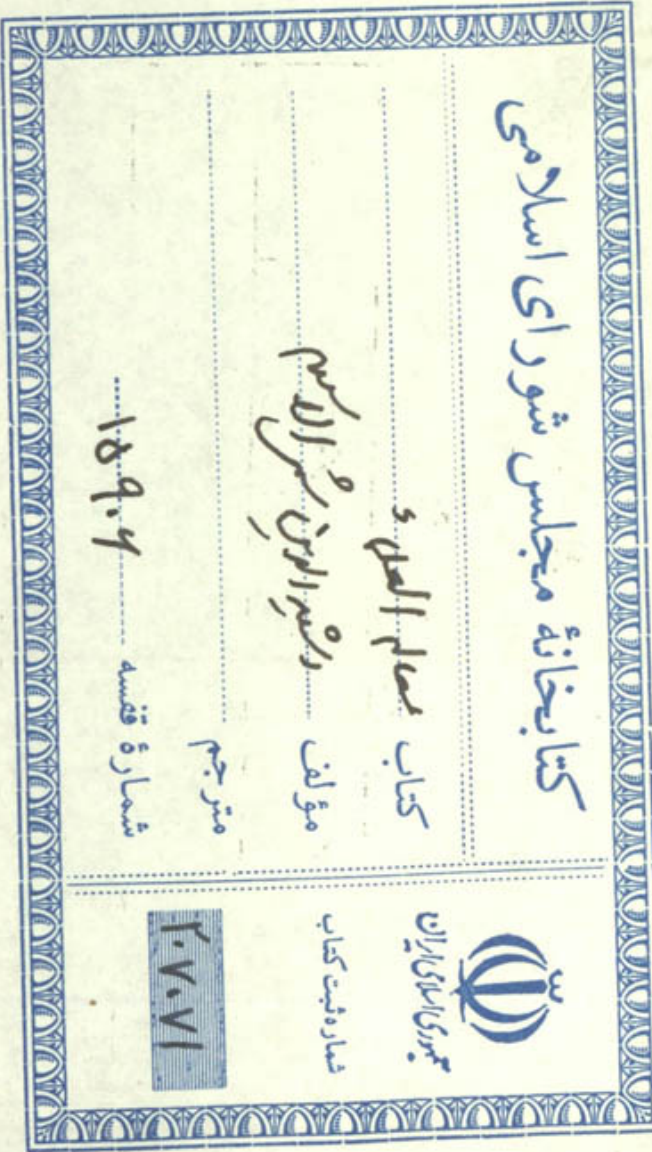 کتابخانهٔ مجلس شورای اسلامی
کتاب معالم العلماء
مؤلف رشیدالدین
مترجم
شمارهٔ قفسه ۱۵۹۰۶
جمهوری اسلامی ایران
شماره ثبت کتاب
۲۰۷۰۷۱